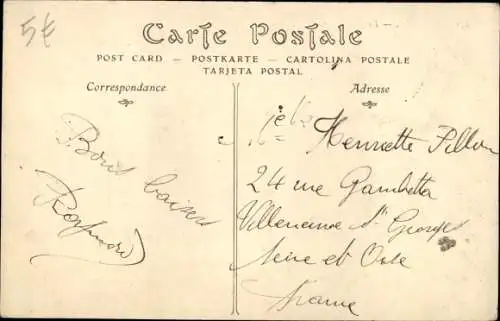 5€
Carte Postale
POST CARD — POSTKARTE — CARTOLINA POSTALE
TARJETA POSTAL
Correspondance
Adresse
Bons baisers
Henriette
24 rue Gambetta
Villeneuve St Georges
Seine et Oise
France